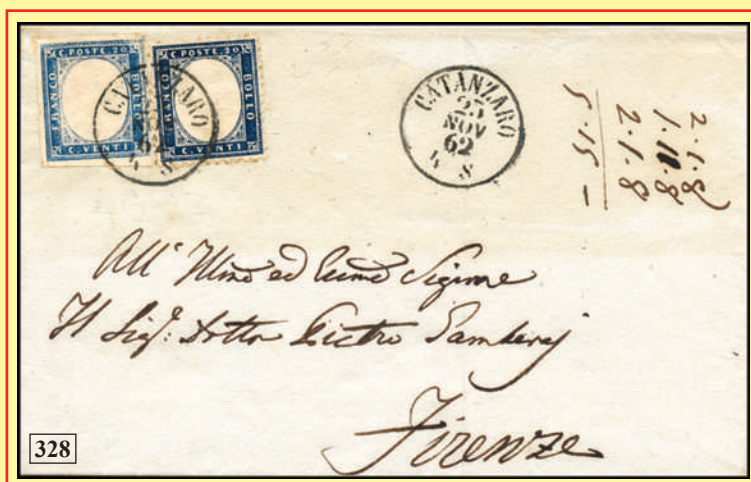 C. POSTE. 20
FRANCO
BOLLO
C. VENTI
C. POSTE. 20
FRANCO
BOLLO
C. VENTI
CATANZARO
62
4 S
CATANZARO
25
NOV
62
4 S
2.1.8
1.11.8
2.1.8
5.15 –
All' Illmo ed Signore
Il Sigr. Pietro
Firenze
328